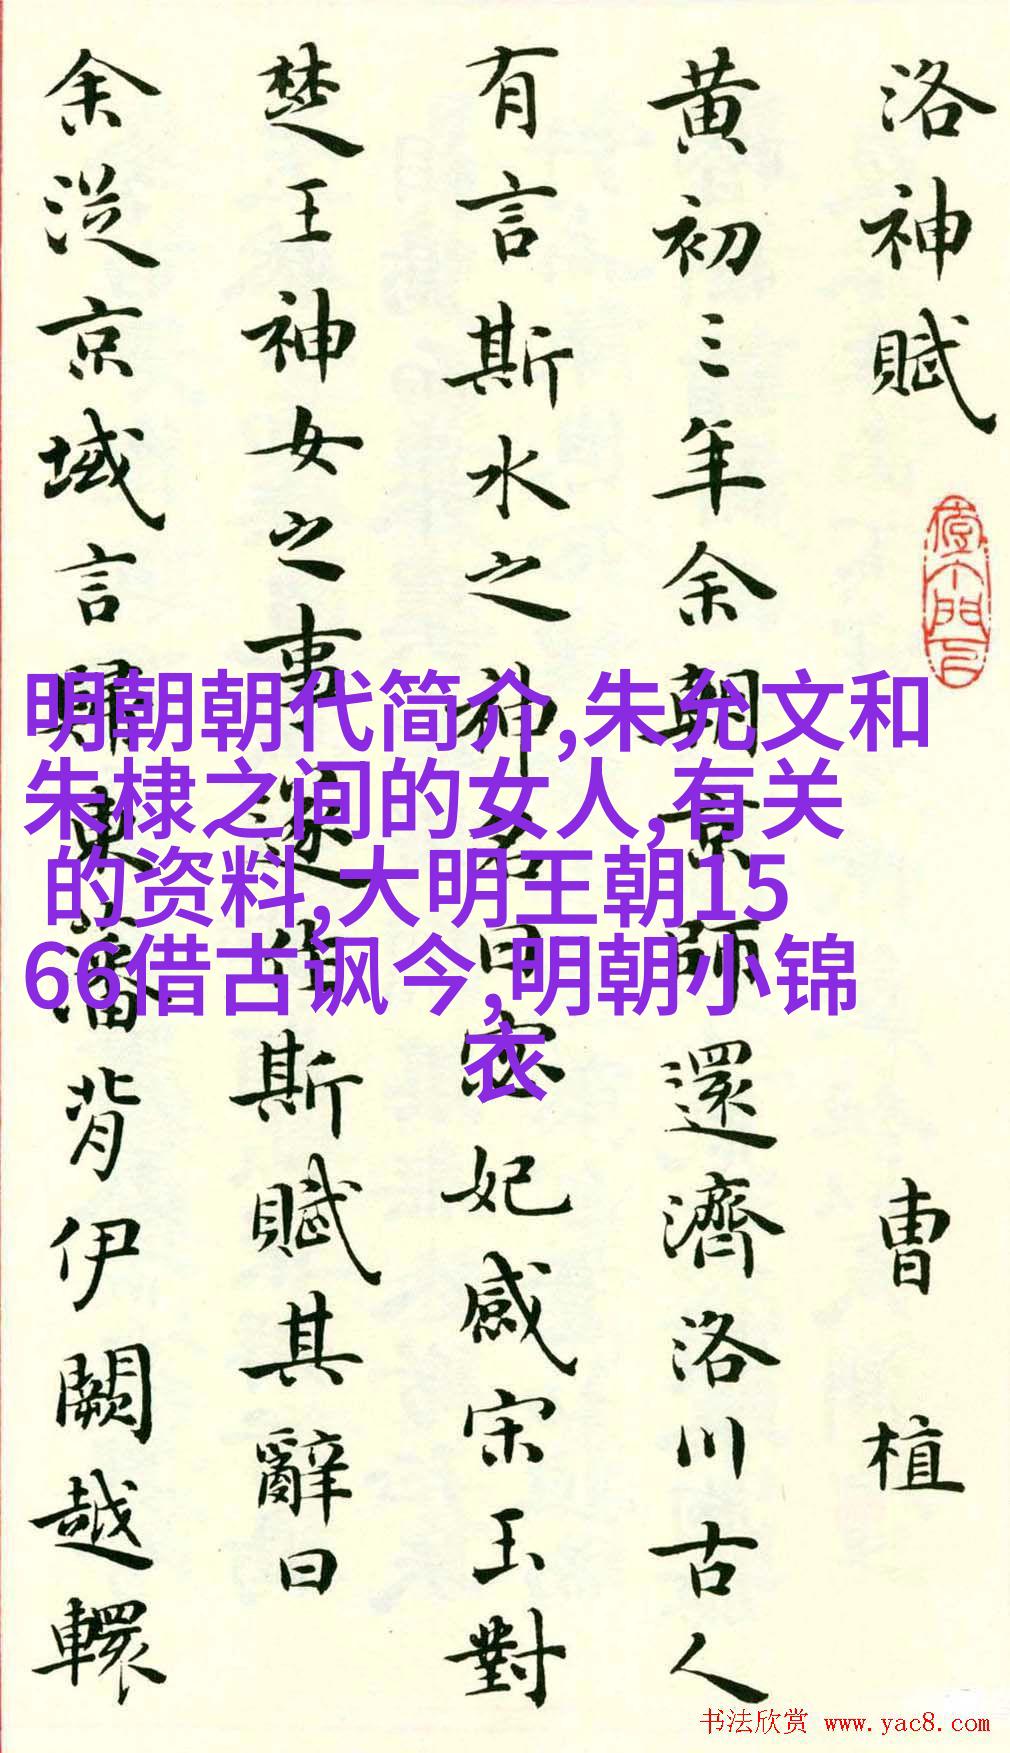 洛神賦
曹植
黄初三年余朝京師還濟洛川古人
有言斯水之神名曰宓妃感宋玉對
楚王神女之事遂作斯賦其辭曰
余從京域言歸東藩背伊闕越轘
明朝朝代简介,朱允文和
朱棣之间的女人,有关
的资料,大明王朝15
66借古讽今,明朝小锦
衣
书法欣赏 www.yac8.com